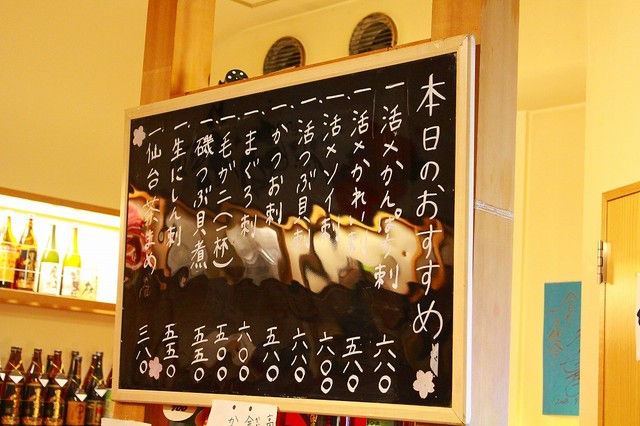 本日のおすすめ
一活〆かんぱち刺 六八〇
一活〆かれい刺 五八〇
一活〆ソイ刺 六〇〇
一活つぶ貝刺 六八〇
一かつお刺 五八〇
一まぐろ刺 六〇〇
一毛がニ(一杯) 五〇〇
一磯つぶ貝煮 五五〇
一生にしん刺 五五〇
一仙台 三八〇